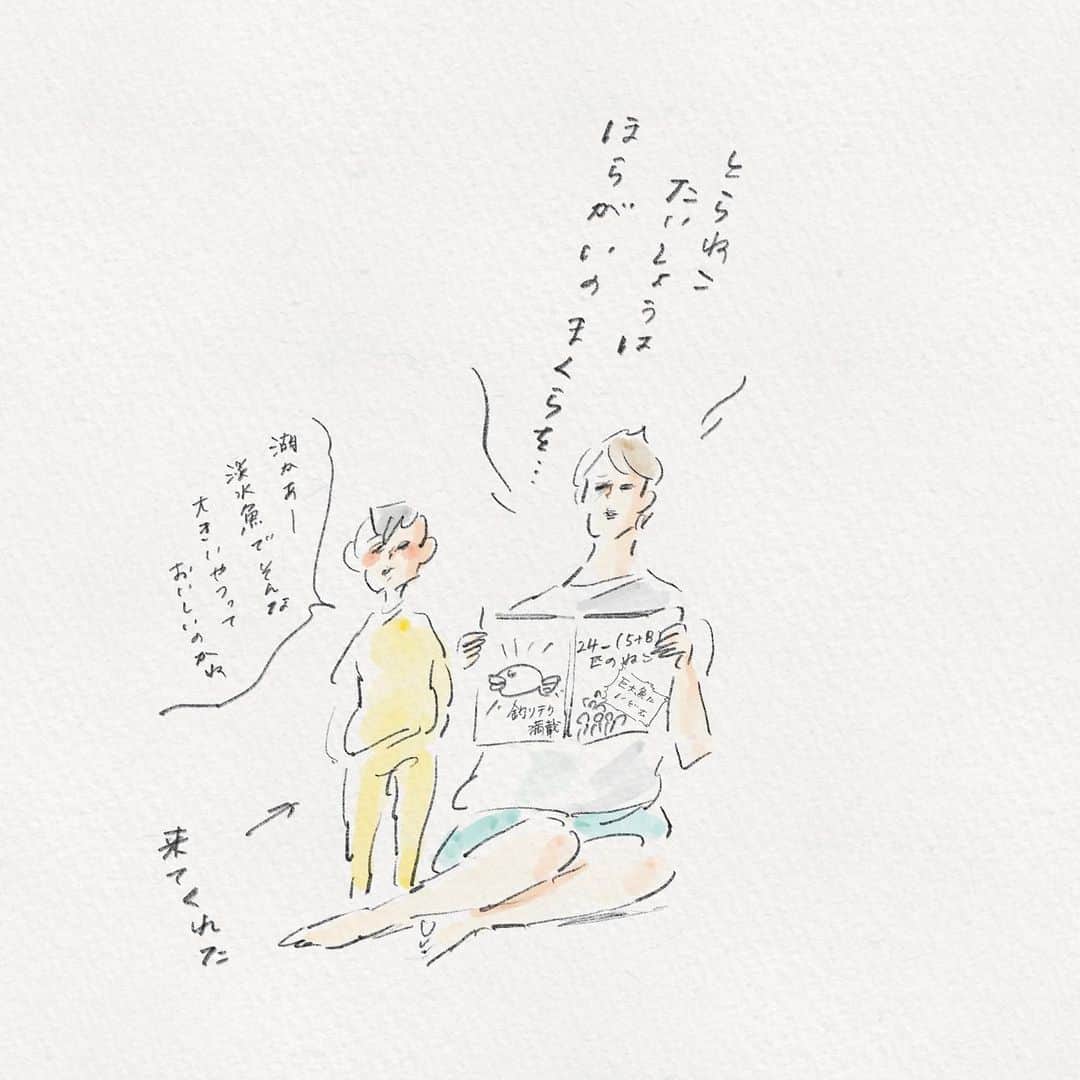 とらねこ
たいしょうは
ほらがいの
まくらを…
湖かぁー
淡水魚でそんな
大きいやつって
おいしいのかね
24-(5+8)
匹のねこ
巨大魚に
釣りテク
満載
来てくれた